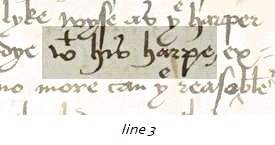 lyke wyse as yͤ harper
dye wᵗ his harpe, ex-
no more can yͤ reasoble
line 3